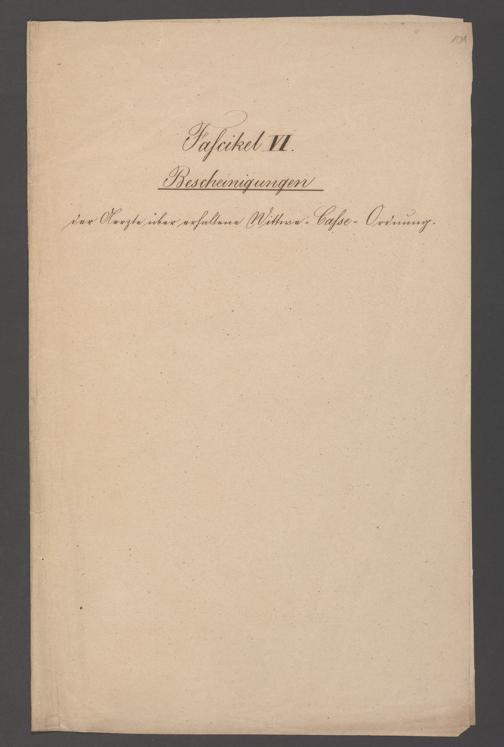 Fascikel VI.
Bescheinigungen
der Aerzte über erhaltene Wittwe-Casse-Ordnung.